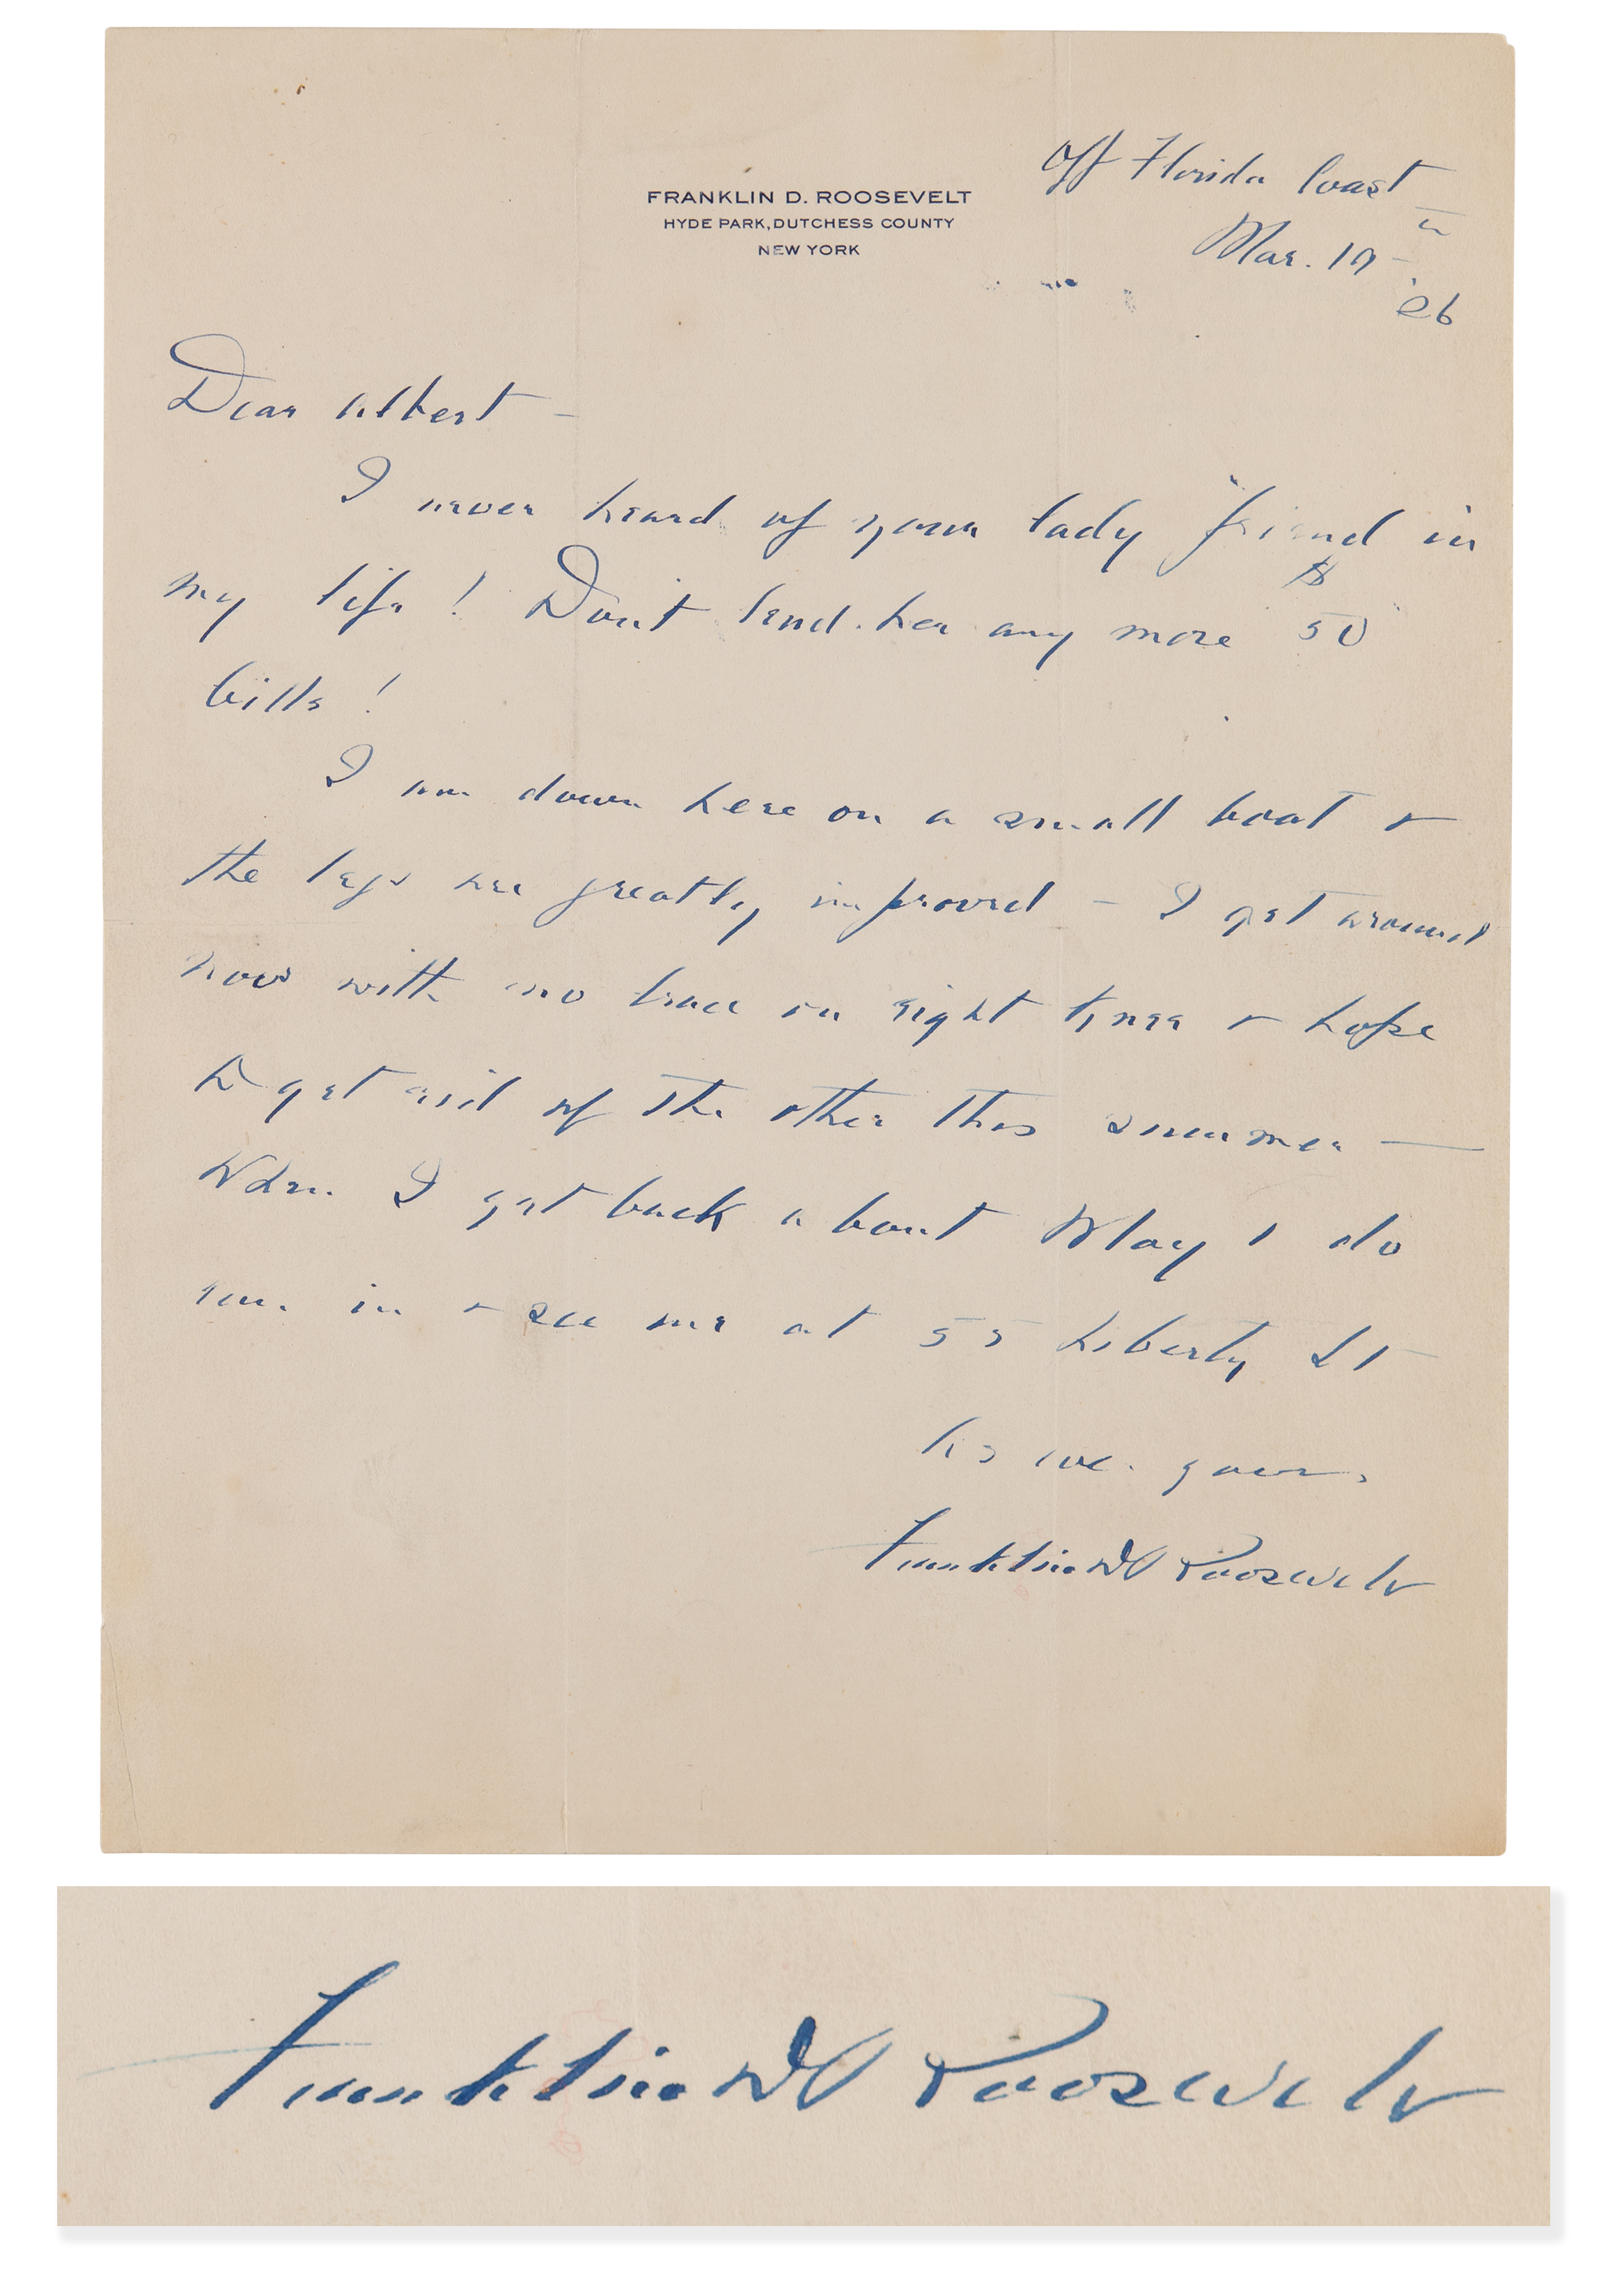 FRANKLIN D. ROOSEVELT
HYDE PARK, DUTCHESS COUNTY
NEW YORK
Off Florida Coast
Mar. 19
'26
Dear Albert –
I never heard of your lady friend in
my life! Don't lend her any more $50
bills!
I am down here on a small boat &
the legs are greatly improved – I get around
now with no brace on right knee & hope
to get rid of the other this summer —
When I get back about May 1 do
run in & see me at 55 Liberty St
As ever yours
Franklin D Roosevelt
Franklin D Roosevelt